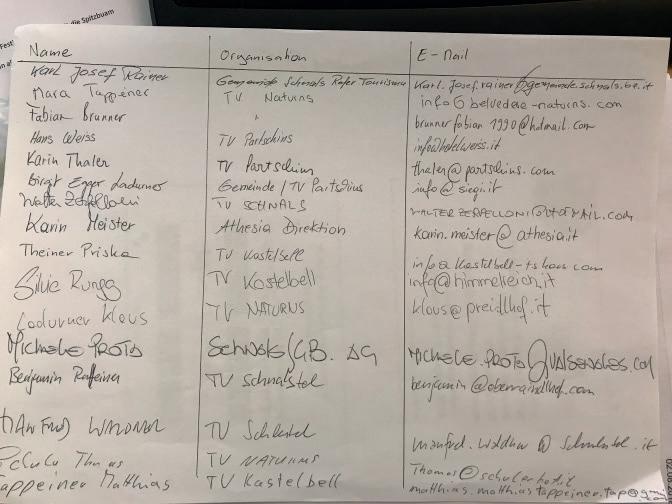 die Spitzbuam
Fest
Name Organisation E-Mail
Karl Josef Rainer Gemeinde Schnals Refer Tourismus karl.josef.rainer@gemeinde.schnals.bz.it
Mara Tappeiner TV Naturns info@belvedere-naturns.com
Fabian Brunner " brunnerfabian1990@hotmail.com
Hans Weiss TV Partschins info@hotelweiss.it
Karin Thaler TV Partschins thaler@partschins.com
Birgit Egger Ladurner Gemeinde/TV Partschins info@siegi.it
Walter TV SCHNALS
Karin Meister Athesia Direktion karin.meister@athesia.it
Theiner Priska TV Kastelbell info@kastelbell-tschars.com
Silvia Rungg TV Kastelbell info@himmelreich.it
Ladurner Klaus TV NATURNS klaus@preidlhof.it
MICHELE PROTO AG
Benjamin Raffeiner TV Schnalstal benjamin@oberraindlhof.com
MANFRED WALDNER TV Schnalstal
Thomas TV NATURNS
Tappeiner Matthias TV Kastelbell